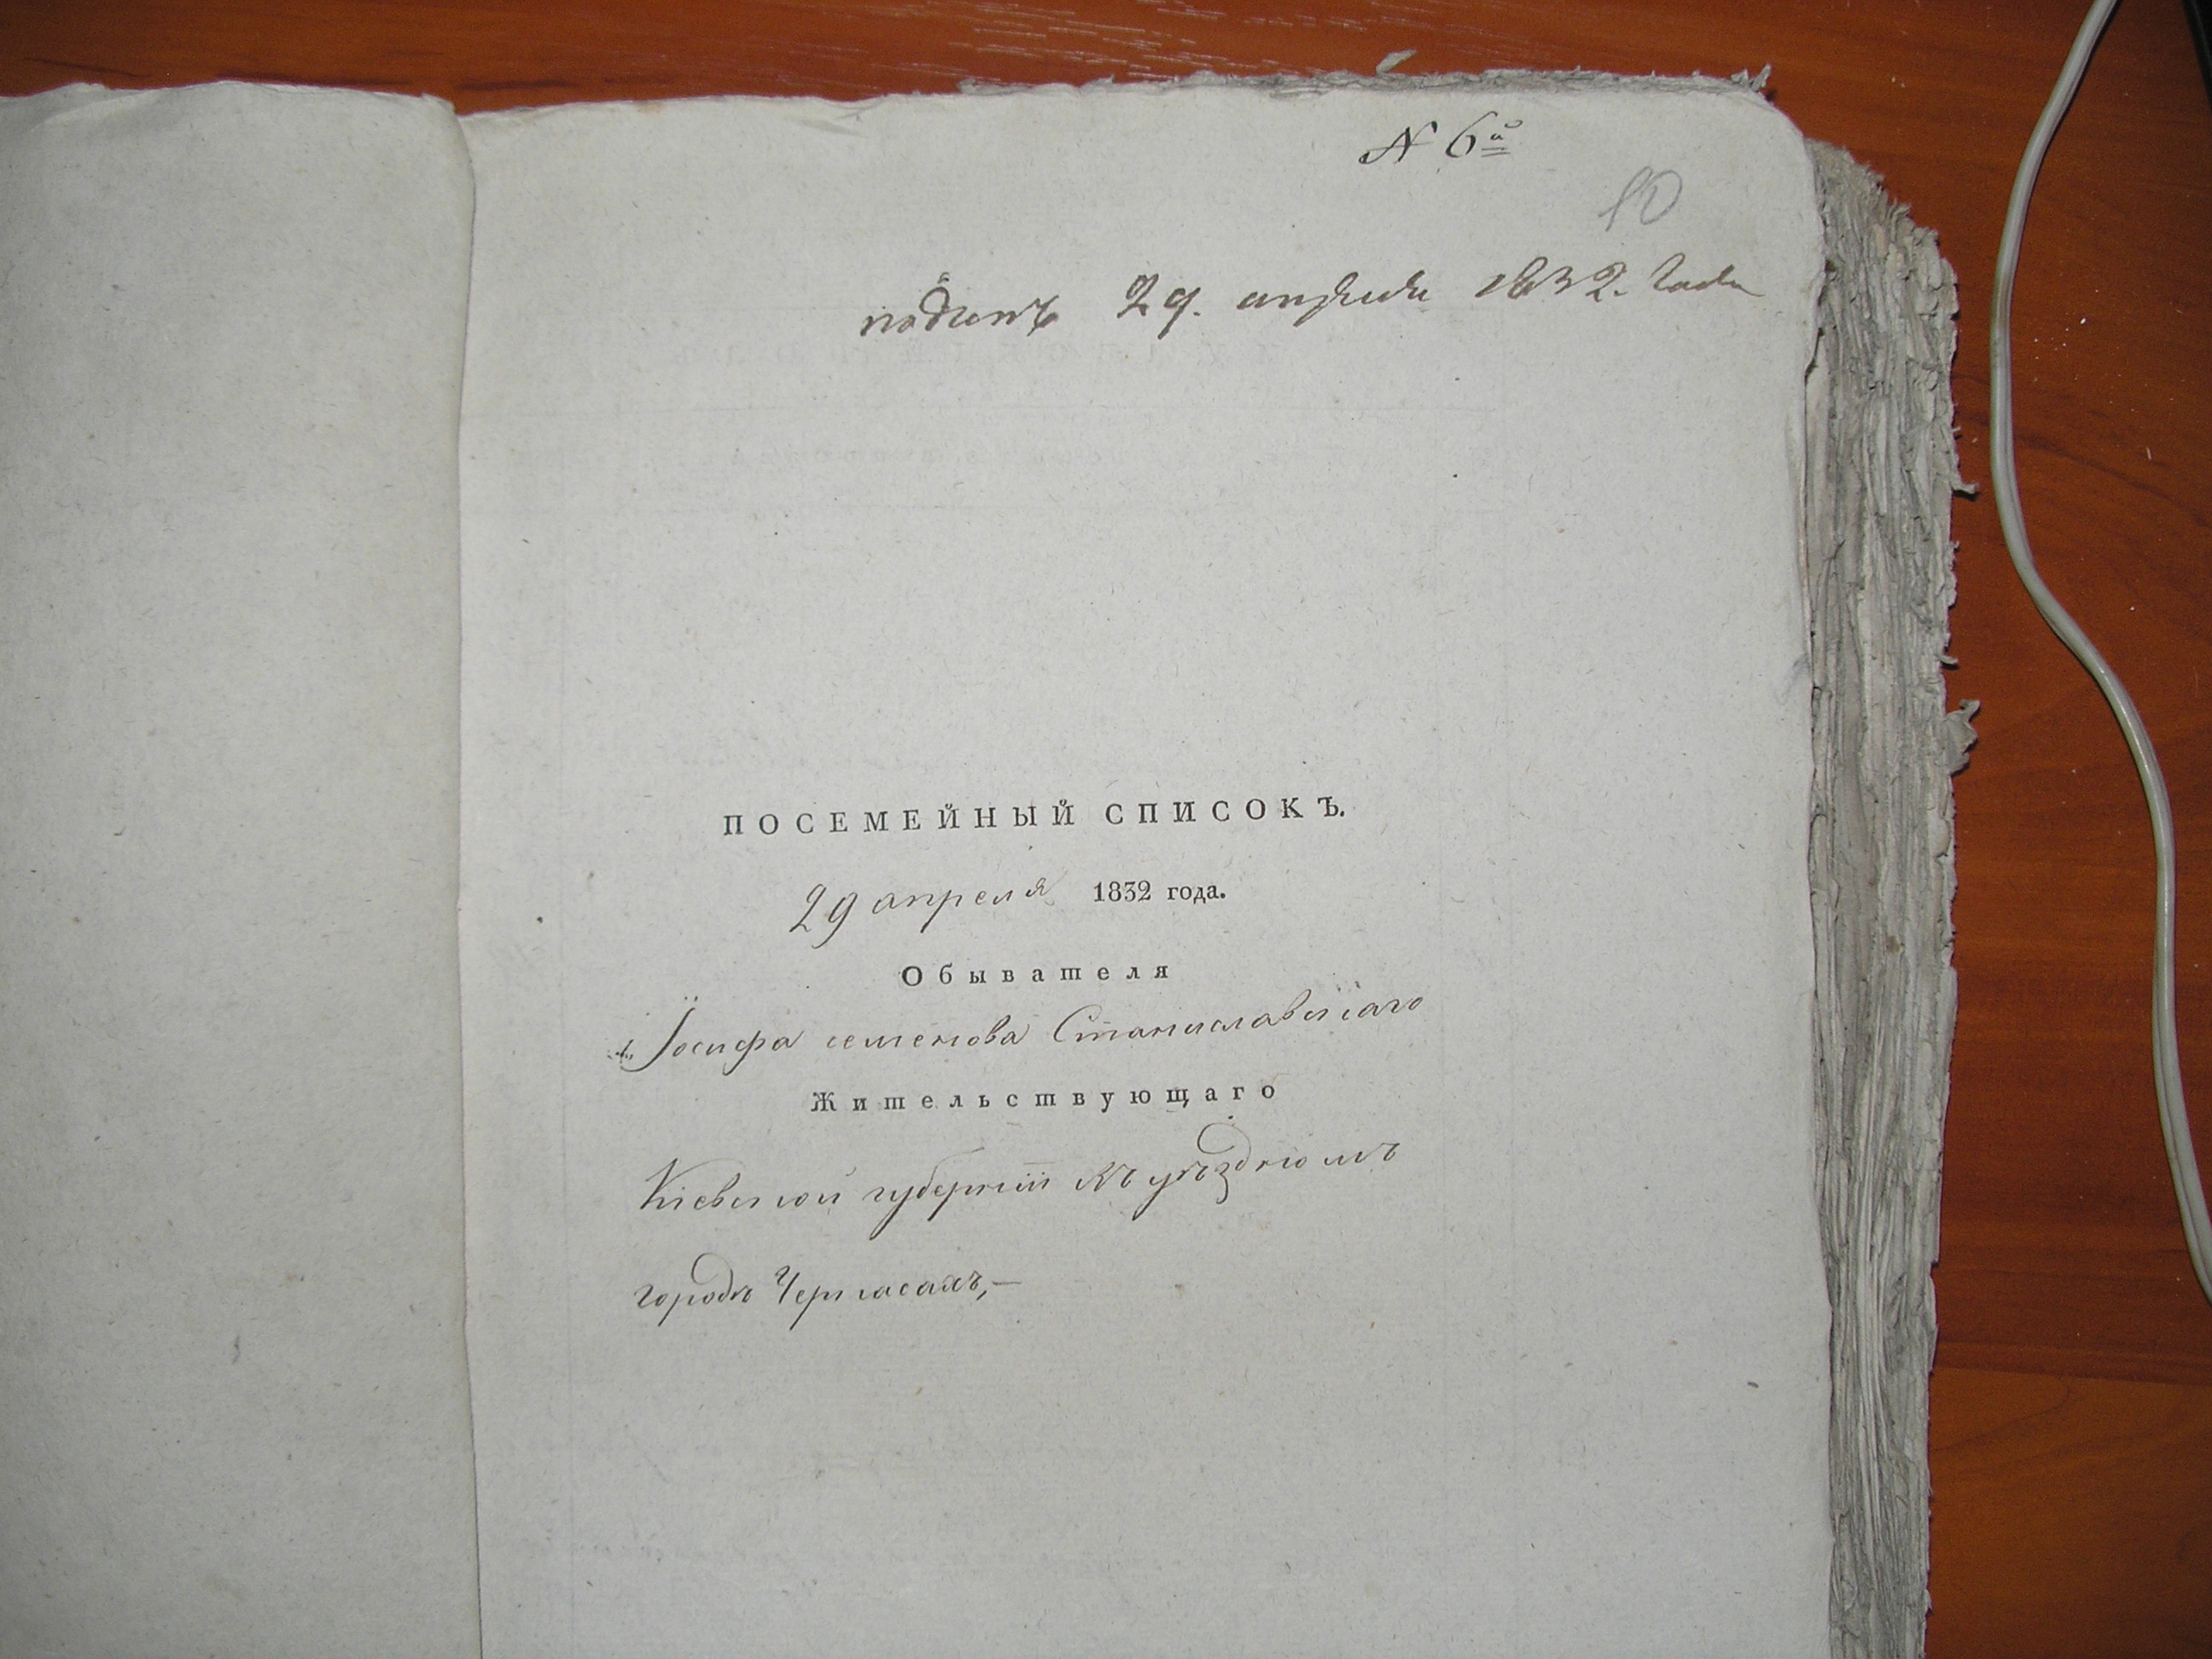 N 6й
10
поданъ 29. апреля 1832. Года
ПОСЕМЕЙНЫЙ СПИСОКЪ.
29 апреля 1832 года.
Обывателя
Іосифа семенова Станиславскаго
Жительствующаго
Кіевской губерніи въ уѣздномъ
городѣ Черкасахъ,—